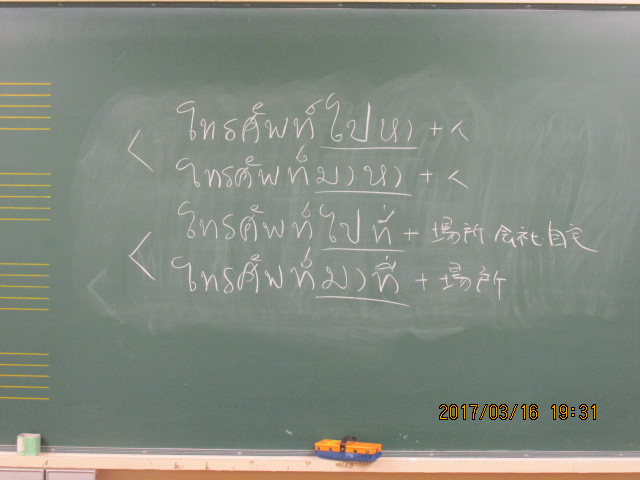 โทรศัพท์ไปหา + 人
โทรศัพท์มาหา + 人
โทรศัพท์ไปที่ + 場所 会社 自宅
โทรศัพท์มาที่ + 場所
2017/03/16 19:31